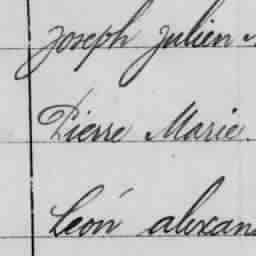 Joseph Julien
Pierre Marie
Léon alexan